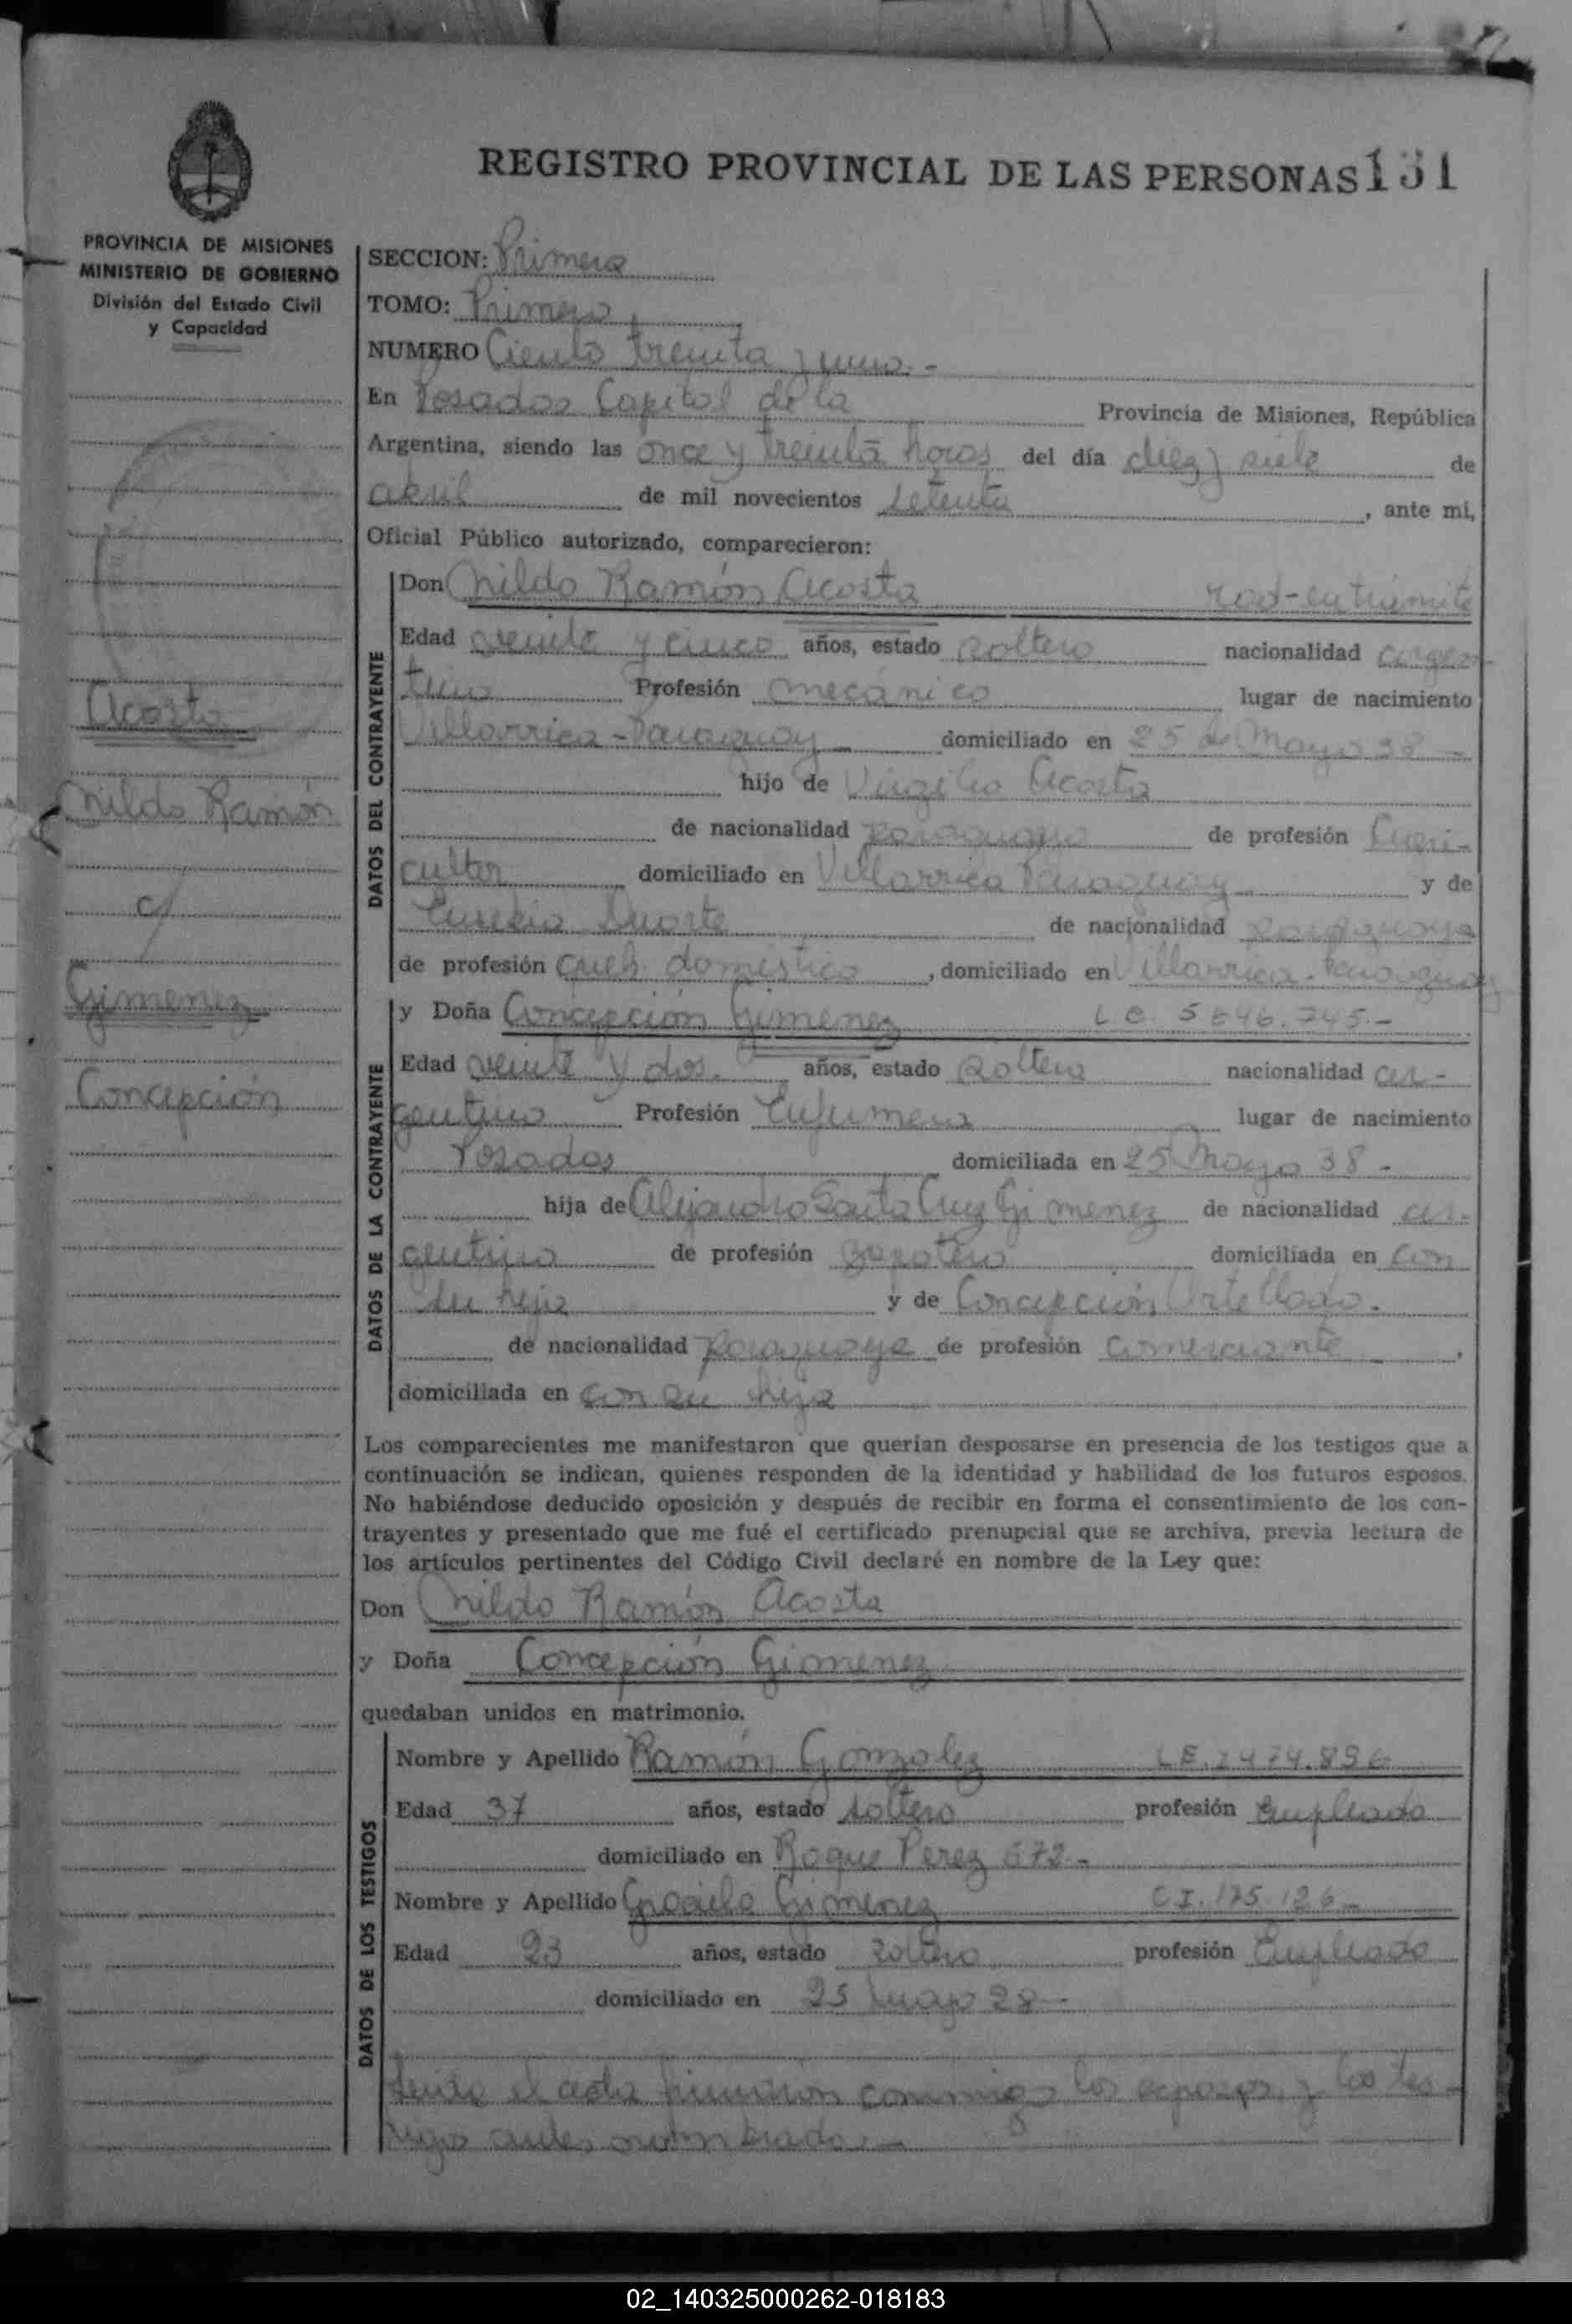 REGISTRO PROVINCIAL DE LAS PERSONAS 131
PROVINCIA DE MISIONES
MINISTERIO DE GOBIERNO
División del Estado Civil
y Capacidad
SECCION: Primera
TOMO: Primero
NUMERO Ciento treinta y uno.-
En Posadas Capital de la Provincia de Misiones, República
Argentina, siendo las once y treinta horas del día diez y siete de
abril de mil novecientos setenta, ante mí,
Oficial Público autorizado, comparecieron:
Acosta
Nildo Ramón
y
Gimenez
Concepción
DATOS DEL CONTRAYENTE
Don Nildo Ramón Acosta rad-en trámite
Edad veinte y cinco años, estado soltero nacionalidad argen-
tino Profesión mecánico lugar de nacimiento
Villarrica-Paraguay domiciliado en 25 de Mayo 38-
hijo de Virgilio Acosta
de nacionalidad paraguayo de profesión
cultor domiciliado en Villarrica Paraguay y de
Eusebia Duarte de nacionalidad paraguaya
de profesión queh. domésticos, domiciliado en Villarrica-Paraguay
DATOS DE LA CONTRAYENTE
y Doña Concepción Gimenez L.C. 5646.745.-
Edad veinte y dos. años, estado soltera nacionalidad ar-
gentina Profesión Enfermera lugar de nacimiento
Posadas domiciliada en 25 Mayo 38-
hija de Alejandro Santa Cruz Gimenez de nacionalidad ar-
gentino de profesión zapatero domiciliada en con
su hija y de Concepción Ortellado.
de nacionalidad paraguaya de profesión comerciante,
domiciliada en con su hija
Los comparecientes me manifestaron que querían desposarse en presencia de los testigos que a
continuación se indican, quienes responden de la identidad y habilidad de los futuros esposos.
No habiéndose deducido oposición y después de recibir en forma el consentimiento de los con-
trayentes y presentado que me fué el certificado prenupcial que se archiva, previa lectura de
los artículos pertinentes del Código Civil declaré en nombre de la Ley que:
Don Nildo Ramón Acosta
y Doña Concepción Gimenez
quedaban unidos en matrimonio.
DATOS DE LOS TESTIGOS
Nombre y Apellido Ramón Gonzalez L.E. 2474.896
Edad 37 años, estado soltero profesión Empleado
domiciliado en Roque Perez 672-
Nombre y Apellido Graciela Gimenez C.I. 175.126-
Edad 23 años, estado soltera profesión Empleada
domiciliado en 25 Mayo 28-
el acta firmaron conmigo los esposos y los tes-
tigos antes nombrados.-
02_140325000262-018183